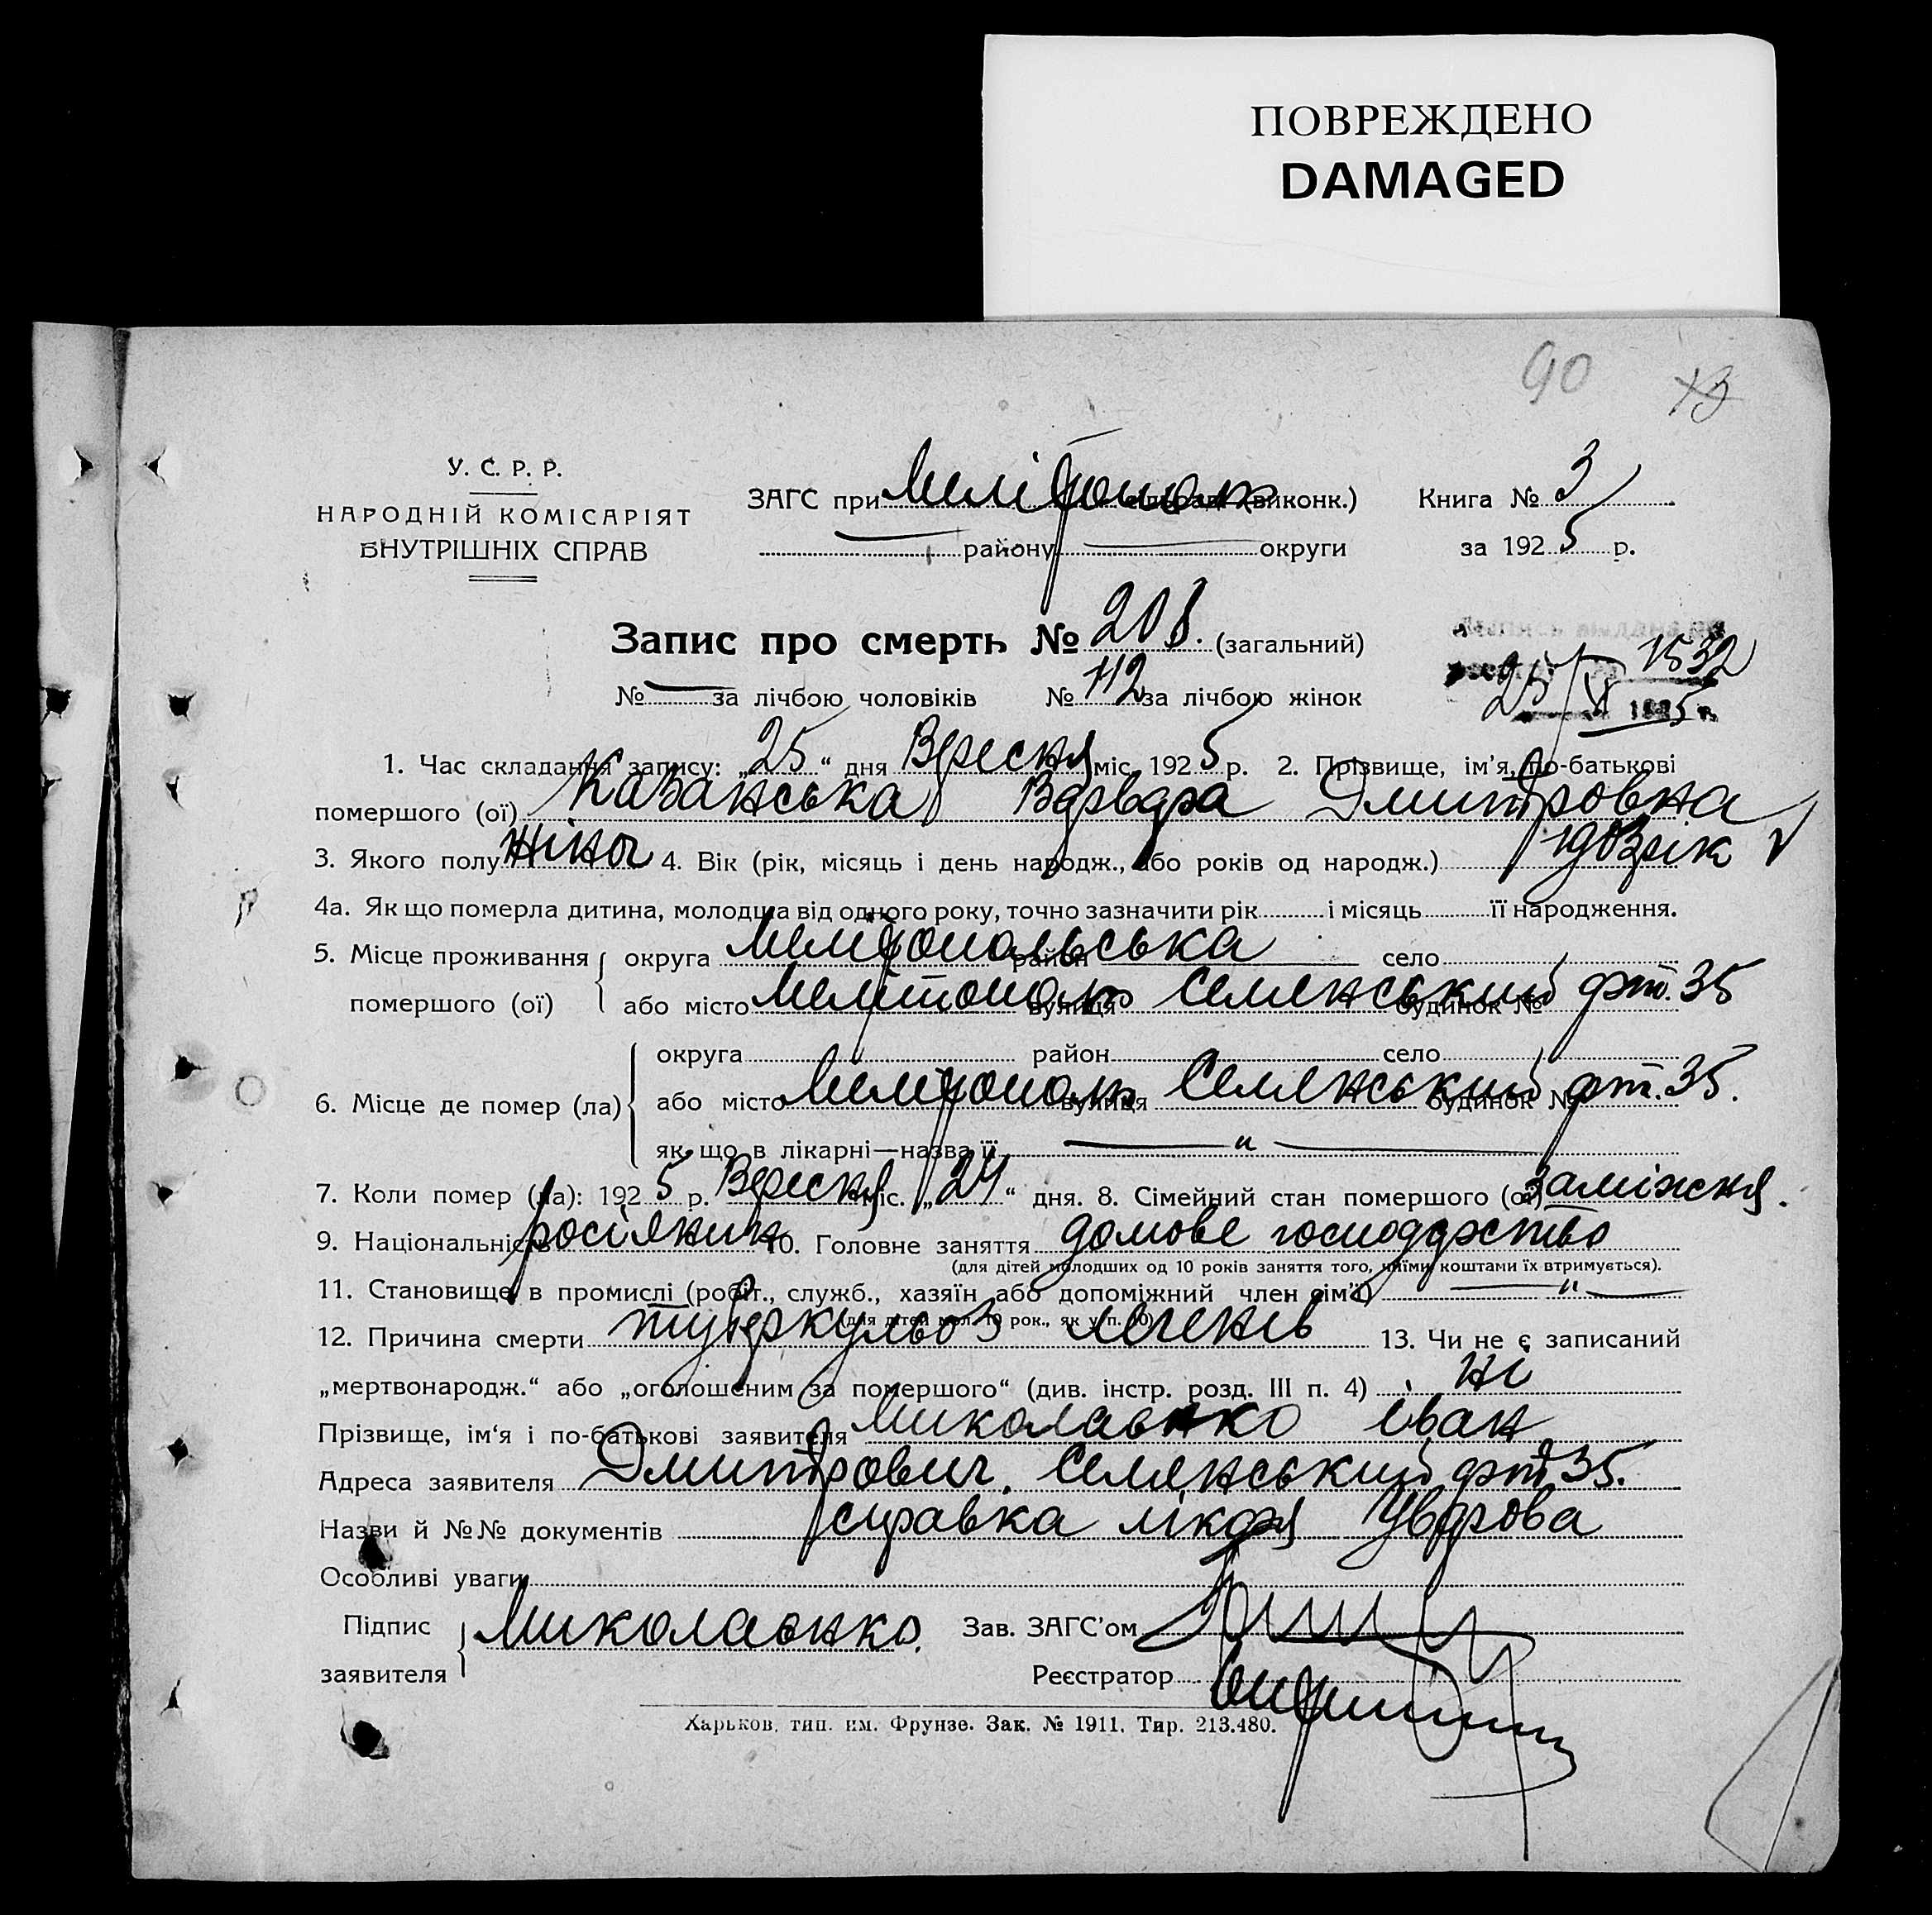 ПОВРЕЖДЕНО
DAMAGED
90 13
У. С. Р. Р.
НАРОДНІЙ КОМІСАРІЯТ
ВНУТРІШНІХ СПРАВ
ЗАГС при Мелітополь (виконк.) Книга № 3
району округи за 1925 р.
Запис про смерть № 208. (загальний)
№ — за лічбою чоловіків № 112 за лічбою жінок
1532
25/IX
1925 г.
1. Час складання запису: „25“ дня Вересня міс. 1925 р. 2. Прізвище, ім'я, по-батькові
помершого (ої) Казанська Варвара Дмитровна
3. Якого полу жіноч 4. Вік (рік, місяць і день народж., або років од народж.) 1903 рік
4а. Як що померла дитина, молодша від одного року, точно зазначити рік і місяць її народження.
5. Місце проживання округа Мелітопольська район село
помершого (ої) або місто Мелітополь вулиця Семенський будинок № 35
округа район село
6. Місце де помер (ла) або місто Мелітополь вулиця Семенський будинок № 35.
як що в лікарні—назва її — „ —
7. Коли помер (ла): 1925 р. Вересня міс. „24“ дня. 8. Сімейний стан помершого (ої) заміжня.
9. Національність росіянин 10. Головне заняття домове господарство
(для дітей молодших од 10 років заняття того, чиїми коштами їх втримується).
11. Становище в промислі (робіт., служб., хазяїн або допоміжний член сім'ї) — „ —
(для дітей мол. 10 рок., як у п. 10)
12. Причина смерти туберкульоз легенів 13. Чи не є записаний
„мертвонародж.“ або „оголошеним за помершого“ (див. інстр. розд. III п. 4) ні
Прізвище, ім'я і по-батькові заявителя Миколаєнко Іван
Адреса заявителя Дмитрович. Семенський 35.
Назви й №№ документів справка лікаря Уварова
Особливі уваги
Підпис заявителя Миколаєнко. Зав. ЗАГС'ом
Реєстратор
Харьков, тип. им. Фрунзе. Зак. № 1911. Тир. 213.480.